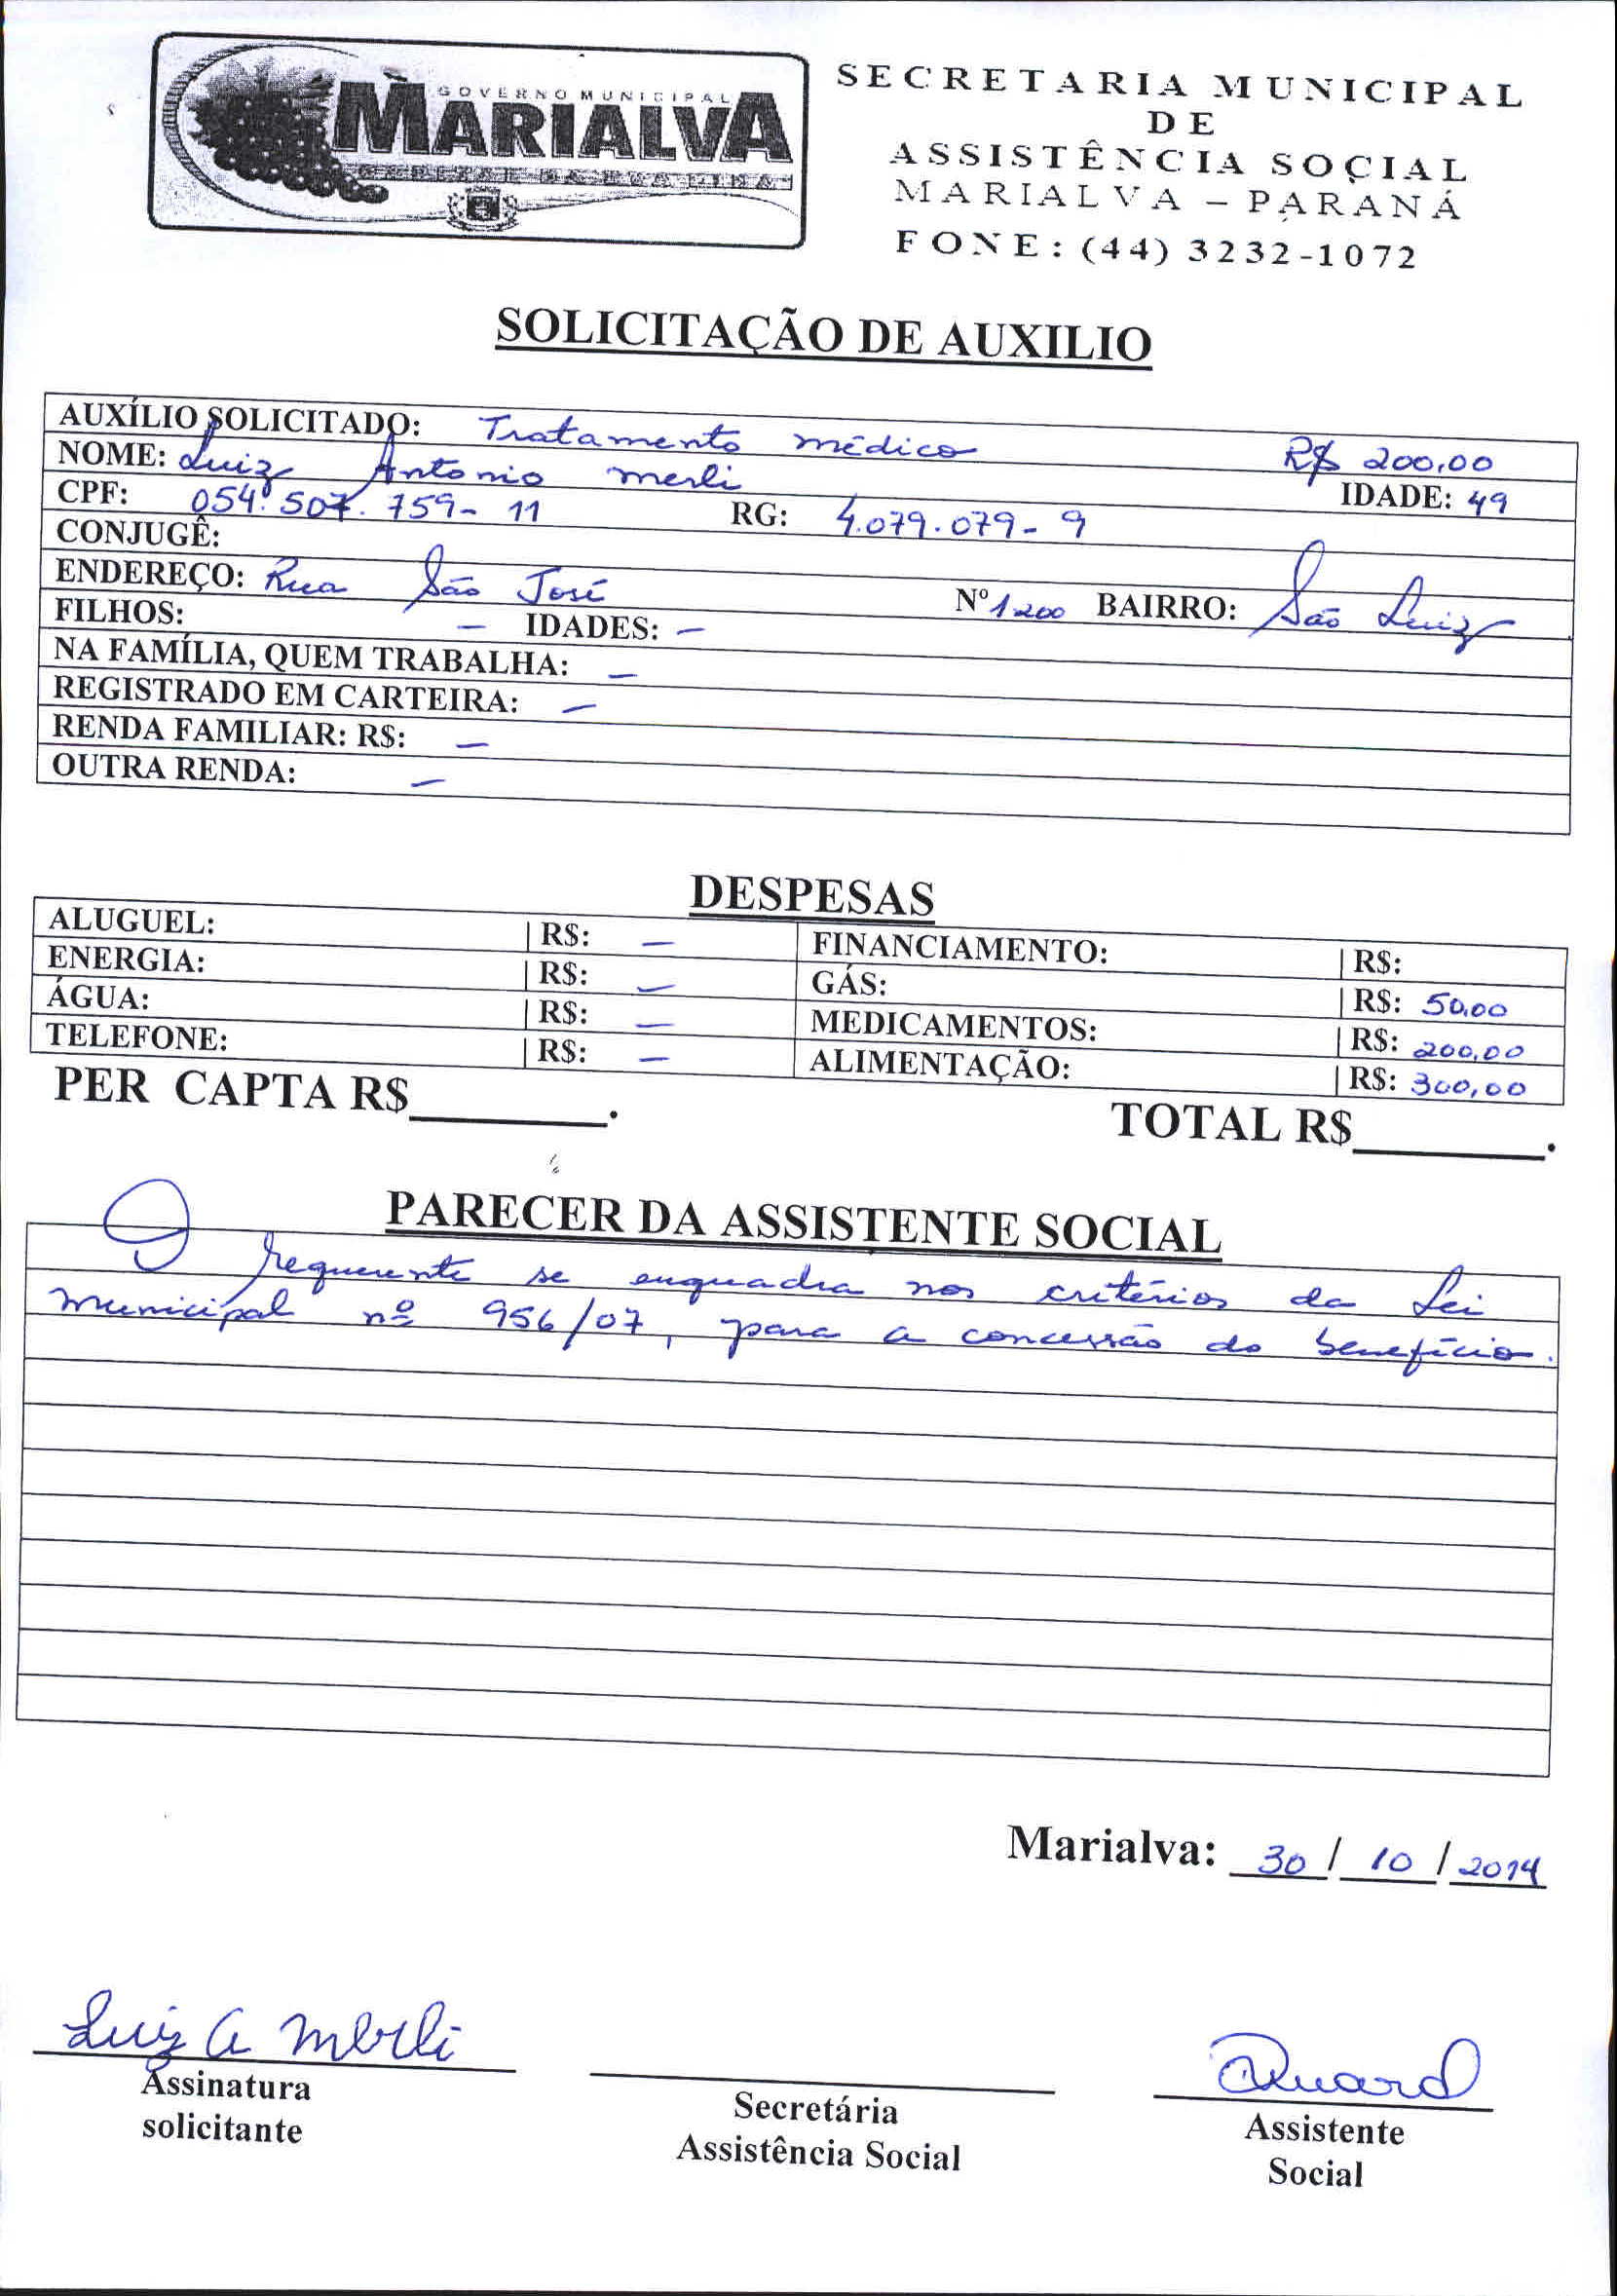 GOVERNO MUNICIPAL
MARIALVA
SECRETARIA MUNICIPAL
DE
ASSISTÊNCIA SOCIAL
MARIALVA – PARANÁ
FONE: (44) 3232-1072
SOLICITAÇÃO DE AUXILIO
AUXÍLIO SOLICITADO: Tratamento médico R$ 200,00
NOME: Luiz Antonio Merli IDADE: 49
CPF: 054.507.759-11 RG: 4.079.079-9
CONJUGÊ:
ENDEREÇO: Rua São José Nº 1200 BAIRRO: São Luiz
FILHOS: – IDADES: –
NA FAMÍLIA, QUEM TRABALHA: –
REGISTRADO EM CARTEIRA: –
RENDA FAMILIAR: R$: –
OUTRA RENDA: –
DESPESAS
ALUGUEL: R$: – FINANCIAMENTO: R$:
ENERGIA: R$: – GÁS: R$: 50,00
ÁGUA: R$: – MEDICAMENTOS: R$: 200,00
TELEFONE: R$: – ALIMENTAÇÃO: R$: 300,00
PER CAPTA R$________. TOTAL R$________.
PARECER DA ASSISTENTE SOCIAL
O requerente se enquadra nos critérios da Lei
Municipal nº 956/07, para a concessão do benefício.
Marialva: 30 / 10 / 2014
Luiz A Merli
Assinatura
solicitante
Secretária
Assistência Social
Assistente
Social